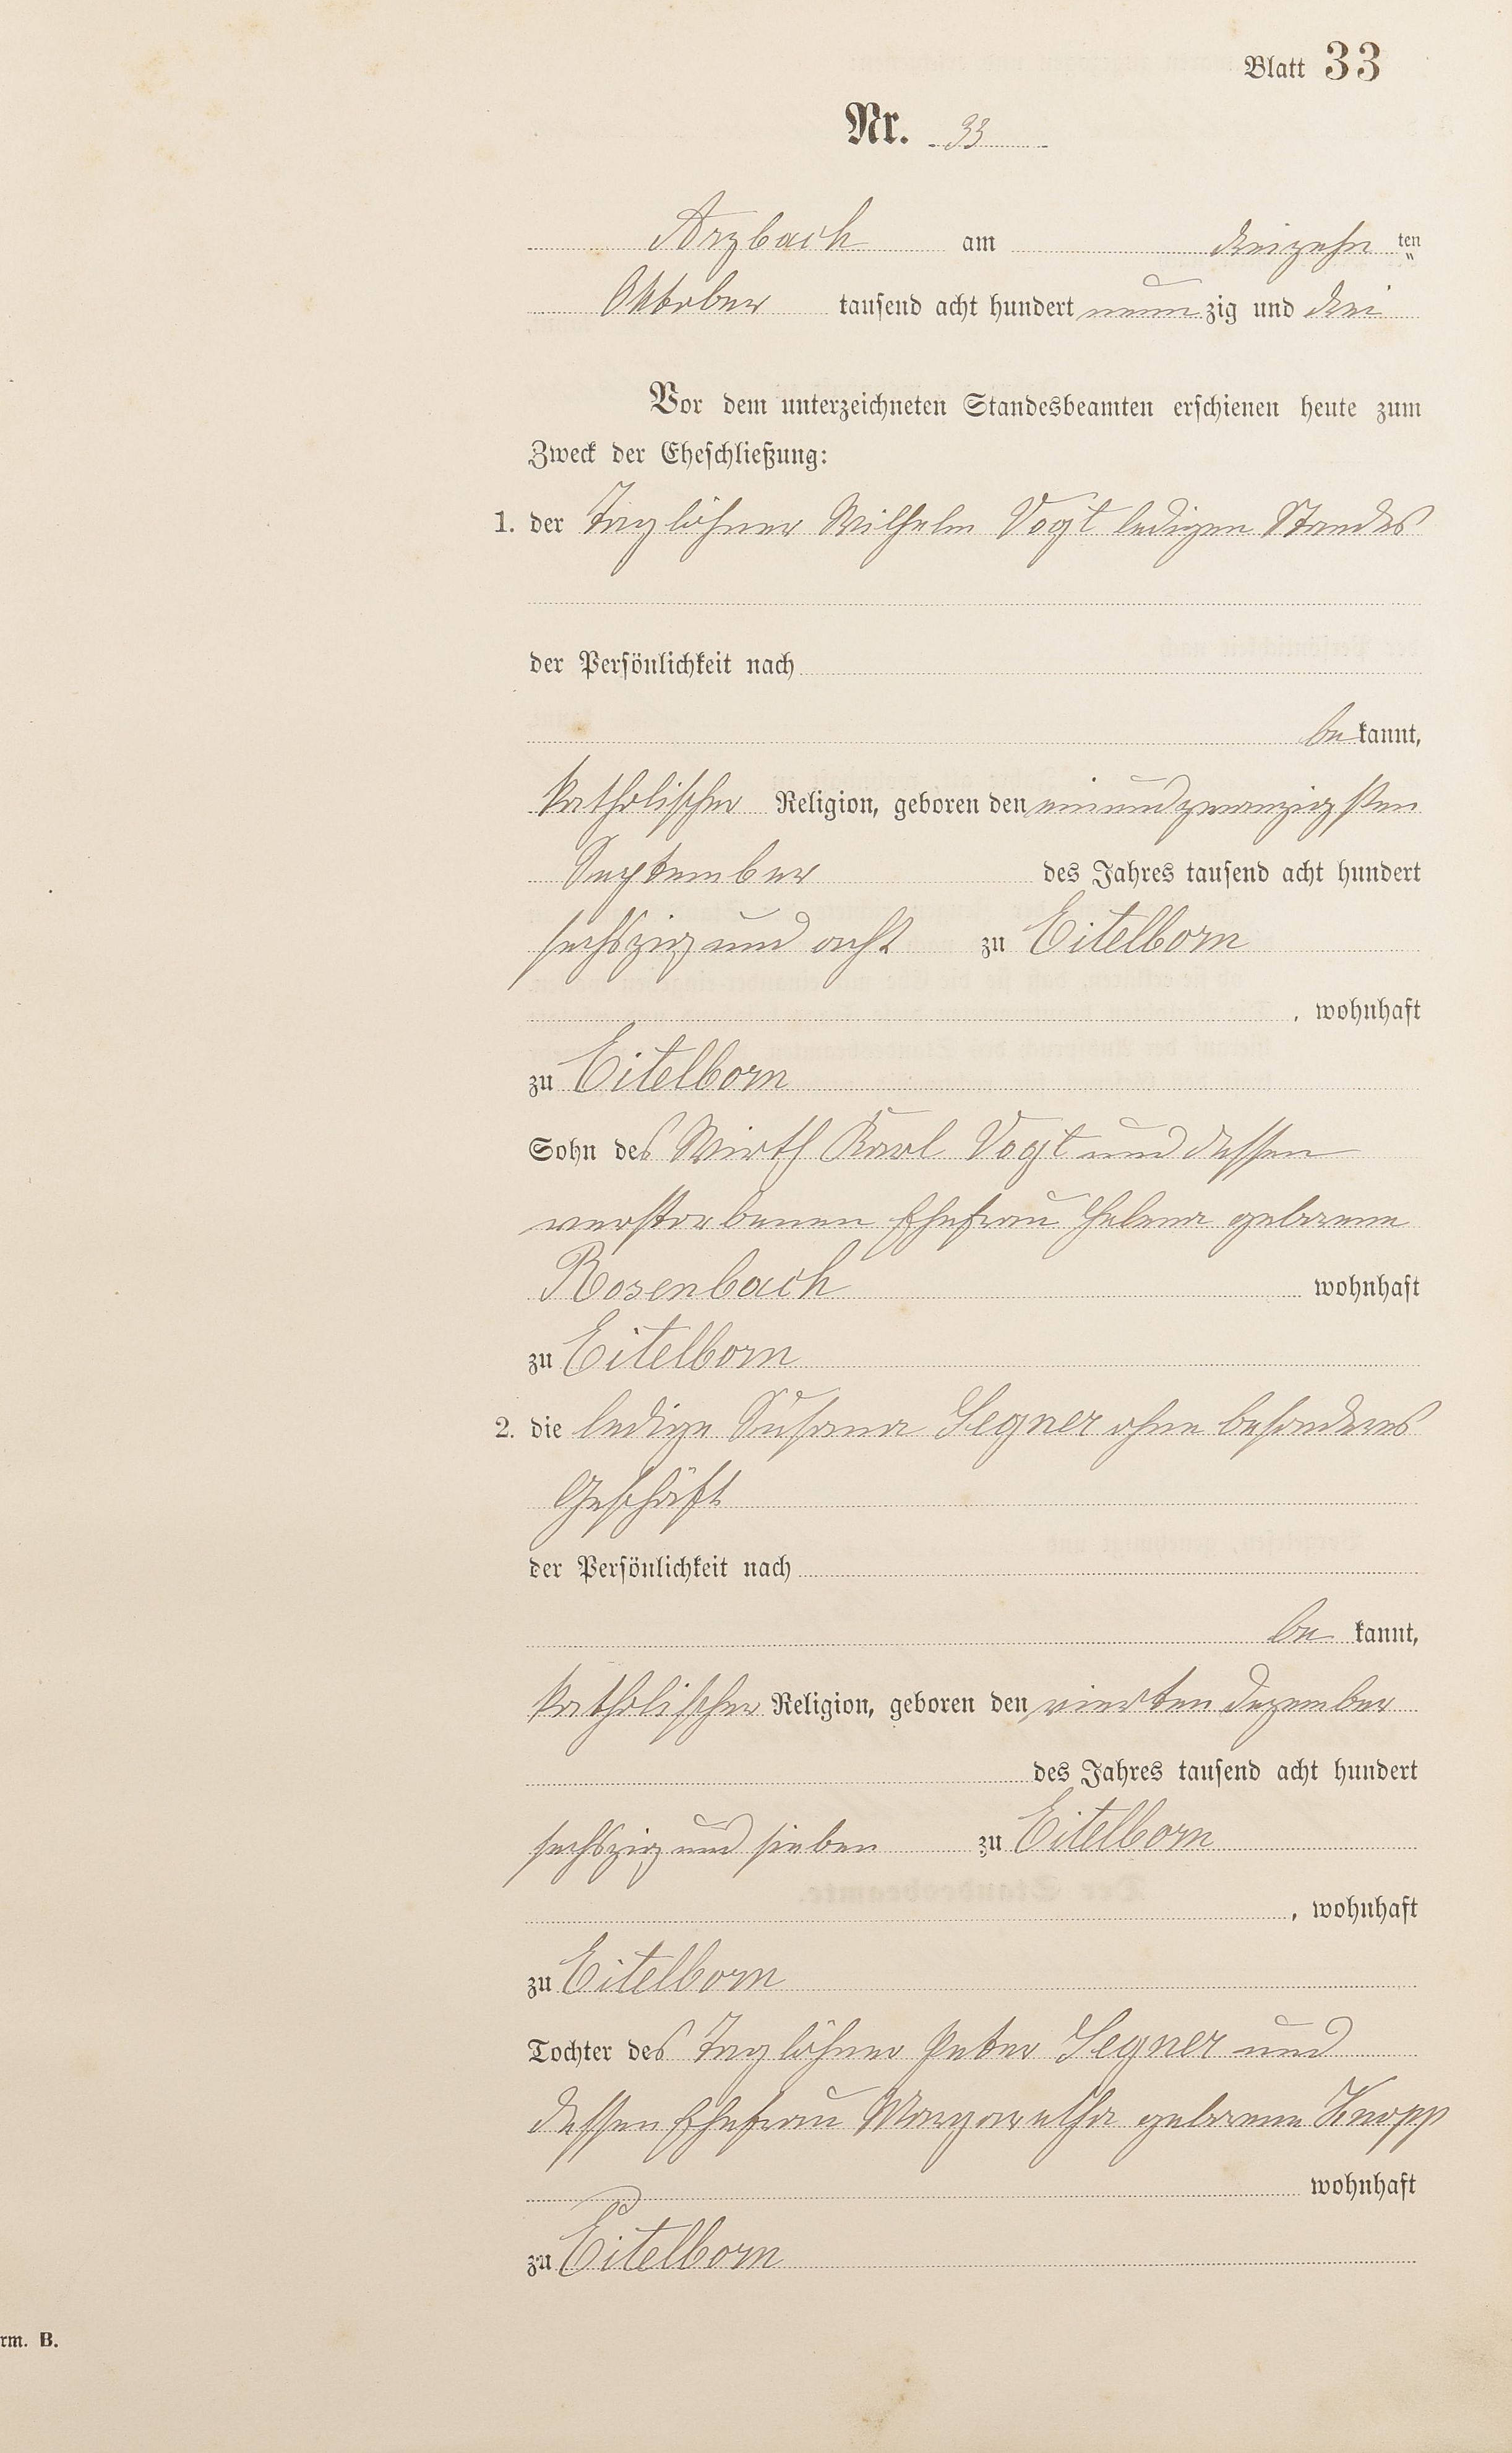 Blatt 33
Nr. 33
Arzbach am dreizehn ten
Oktober tausend acht hundert neun zig und drei
Vor dem unterzeichneten Standesbeamten erschienen heute zum
Zweck der Eheschließung:
1. der Taglöhner Wilhelm Vogt ledigen Standes
der Persönlichkeit nach
be kannt,
katholischer Religion, geboren den einundzwanzigsten
September des Jahres tausend acht hundert
sechszig und acht zu Eitelborn
, wohnhaft
zu Eitelborn
Sohn des Wirth Karl Vogt und dessen
verstorbenen Ehefrau Helena geborene
Rosenbach wohnhaft
zu Eitelborn
2. die ledige Susana Segner ohne besonderes
Geschäft
der Persönlichkeit nach
be kannt,
katholischer Religion, geboren den vierten Dezember
des Jahres tausend acht hundert
sechszig und sieben zu Eitelborn
, wohnhaft
zu Eitelborn
Tochter des Taglöhner Peter Segner und
dessen Ehefrau Margaretha geborene Knopp
wohnhaft
zu Eitelborn
rm. B.